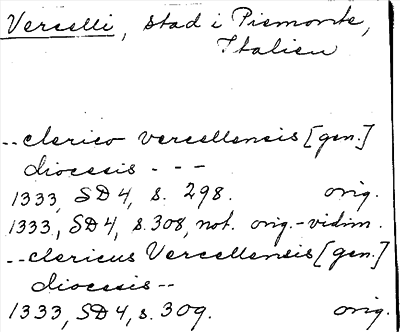 Vercelli, stad i Piemonte,
Italien
--clerico vercellensis [gen.]
diocesis - - -
1333, SD4, s. 298. orig.
1333, SD4, s. 308, not. orig.-vidim.
--clericus Vercellensis [gen.]
diocesis --
1333, SD4, s. 309. orig.